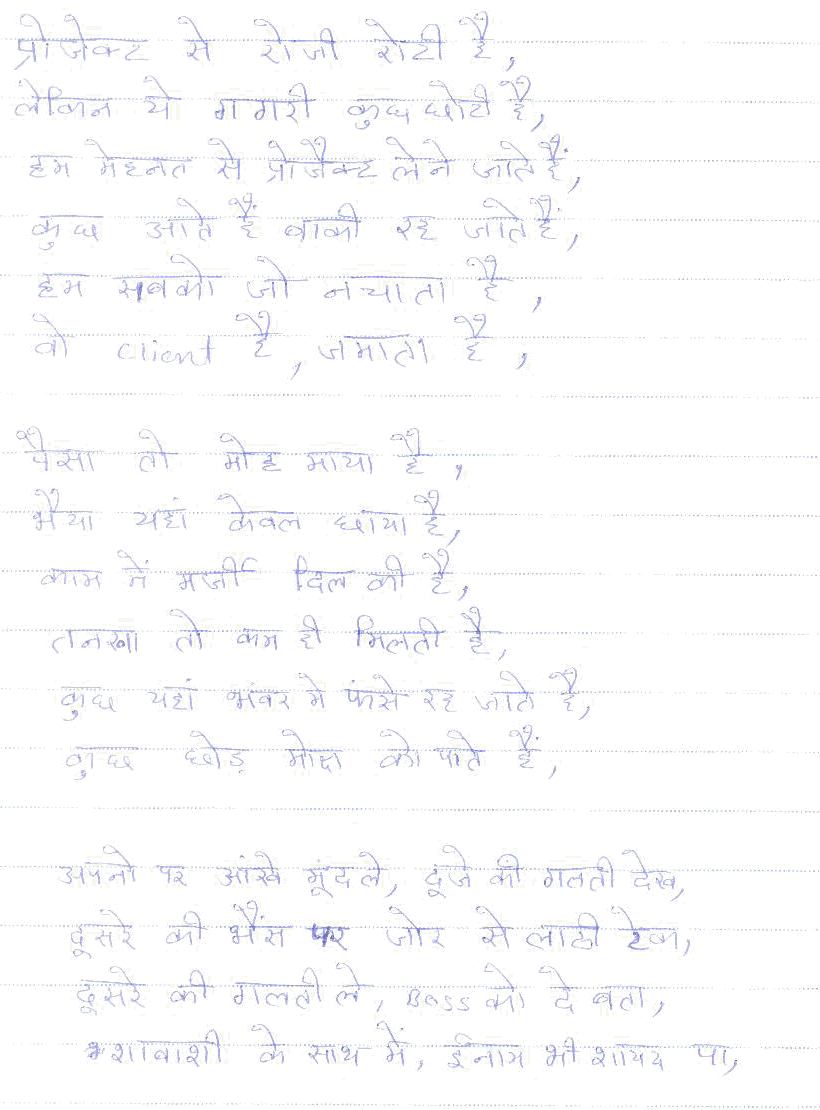 प्रोजेक्ट से रोजी रोटी है,
लेकिन ये गगरी कुछ छोटी है,
हम मेहनत से प्रोजैक्ट लेने जाते हैं,
कुछ आते हैं बाकी रह जाते हैं,
हम सबको जो नचाता है ,
वो client है , जमाता है ,
पैसा तो मोह माया है ,
भैया यहां केवल छाया है,
काम में मर्जी दिल की है,
तनखा तो कम ही मिलती है,
कुछ यहां भंवर मे फंसे रह जाते है,
कुछ छोड़ मोक्ष को पाते हैं,
अपनो पर आंखे मूंद ले, दूजे की गलती देख,
दूसरे की भैंस पर जोर से लाठी टेक,
दूसरे की गलती ले, Boss को दे बता,
शाबाशी के साथ में, ईनाम भी शायद पा,